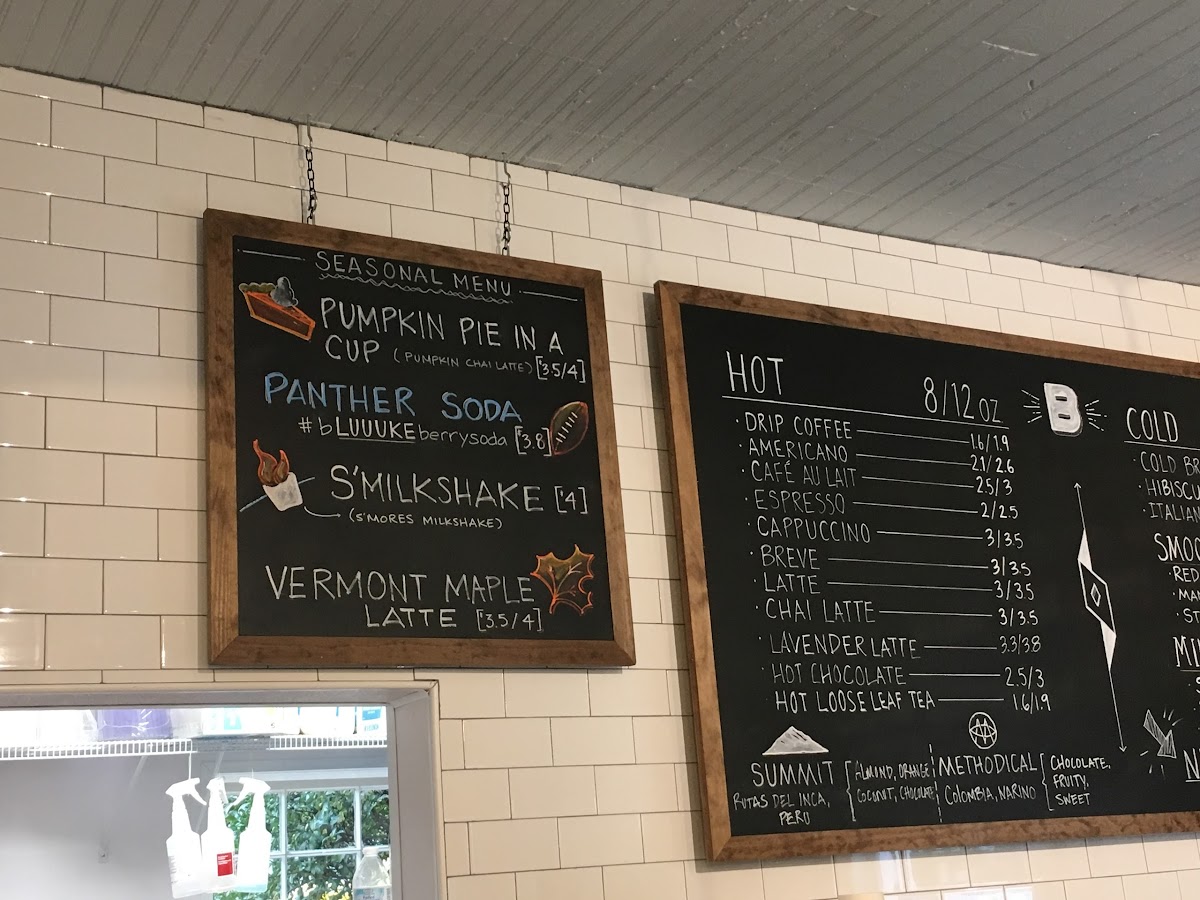 SEASONAL MENU
PUMPKIN PIE IN A
CUP (PUMPKIN CHAI LATTE) [$3.5/4]
PANTHER SODA
#bLUUUKEberrysoda [$3.8]
S'MILKSHAKE [$4]
(S'MORES MILKSHAKE)
VERMONT MAPLE
LATTE [$3.5/4]
HOT 8/12 OZ
· DRIP COFFEE 1.6/1.9
· AMERICANO 2.1/2.6
· CAFÉ AU LAIT 2.5/3
· ESPRESSO 2/2.5
· CAPPUCCINO 3/3.5
· BREVE 3/3.5
· LATTE 3/3.5
· CHAI LATTE 3/3.5
· LAVENDER LATTE 3.3/3.8
· HOT CHOCOLATE 2.5/3
· HOT LOOSE LEAF TEA 1.6/1.9
SUMMIT
RUTAS DEL INCA,
PERU
ALMOND, ORANGE
COCONUT, CHOCOLATE
METHODICAL
COLOMBIA, NARINO
CHOCOLATE,
FRUITY,
SWEET
B
COLD
· COLD BR
· HIBISCU
· ITALIAN
SMOO
· RED
· MAN
· ST
MIL